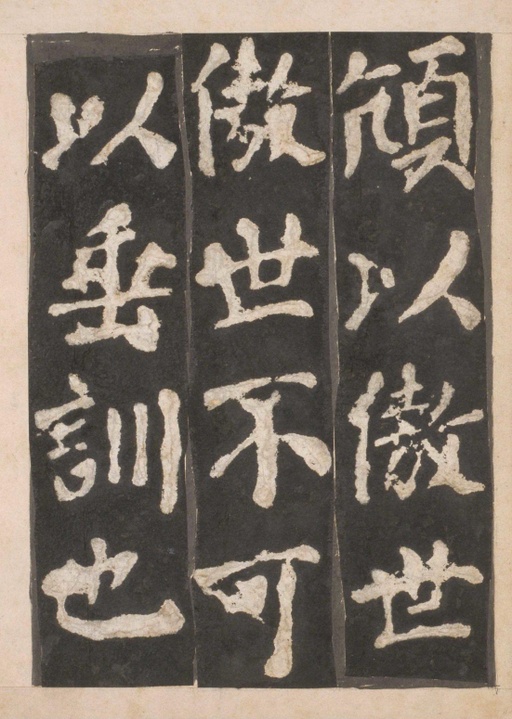 頏以傲世
傲世不可
以垂訓也